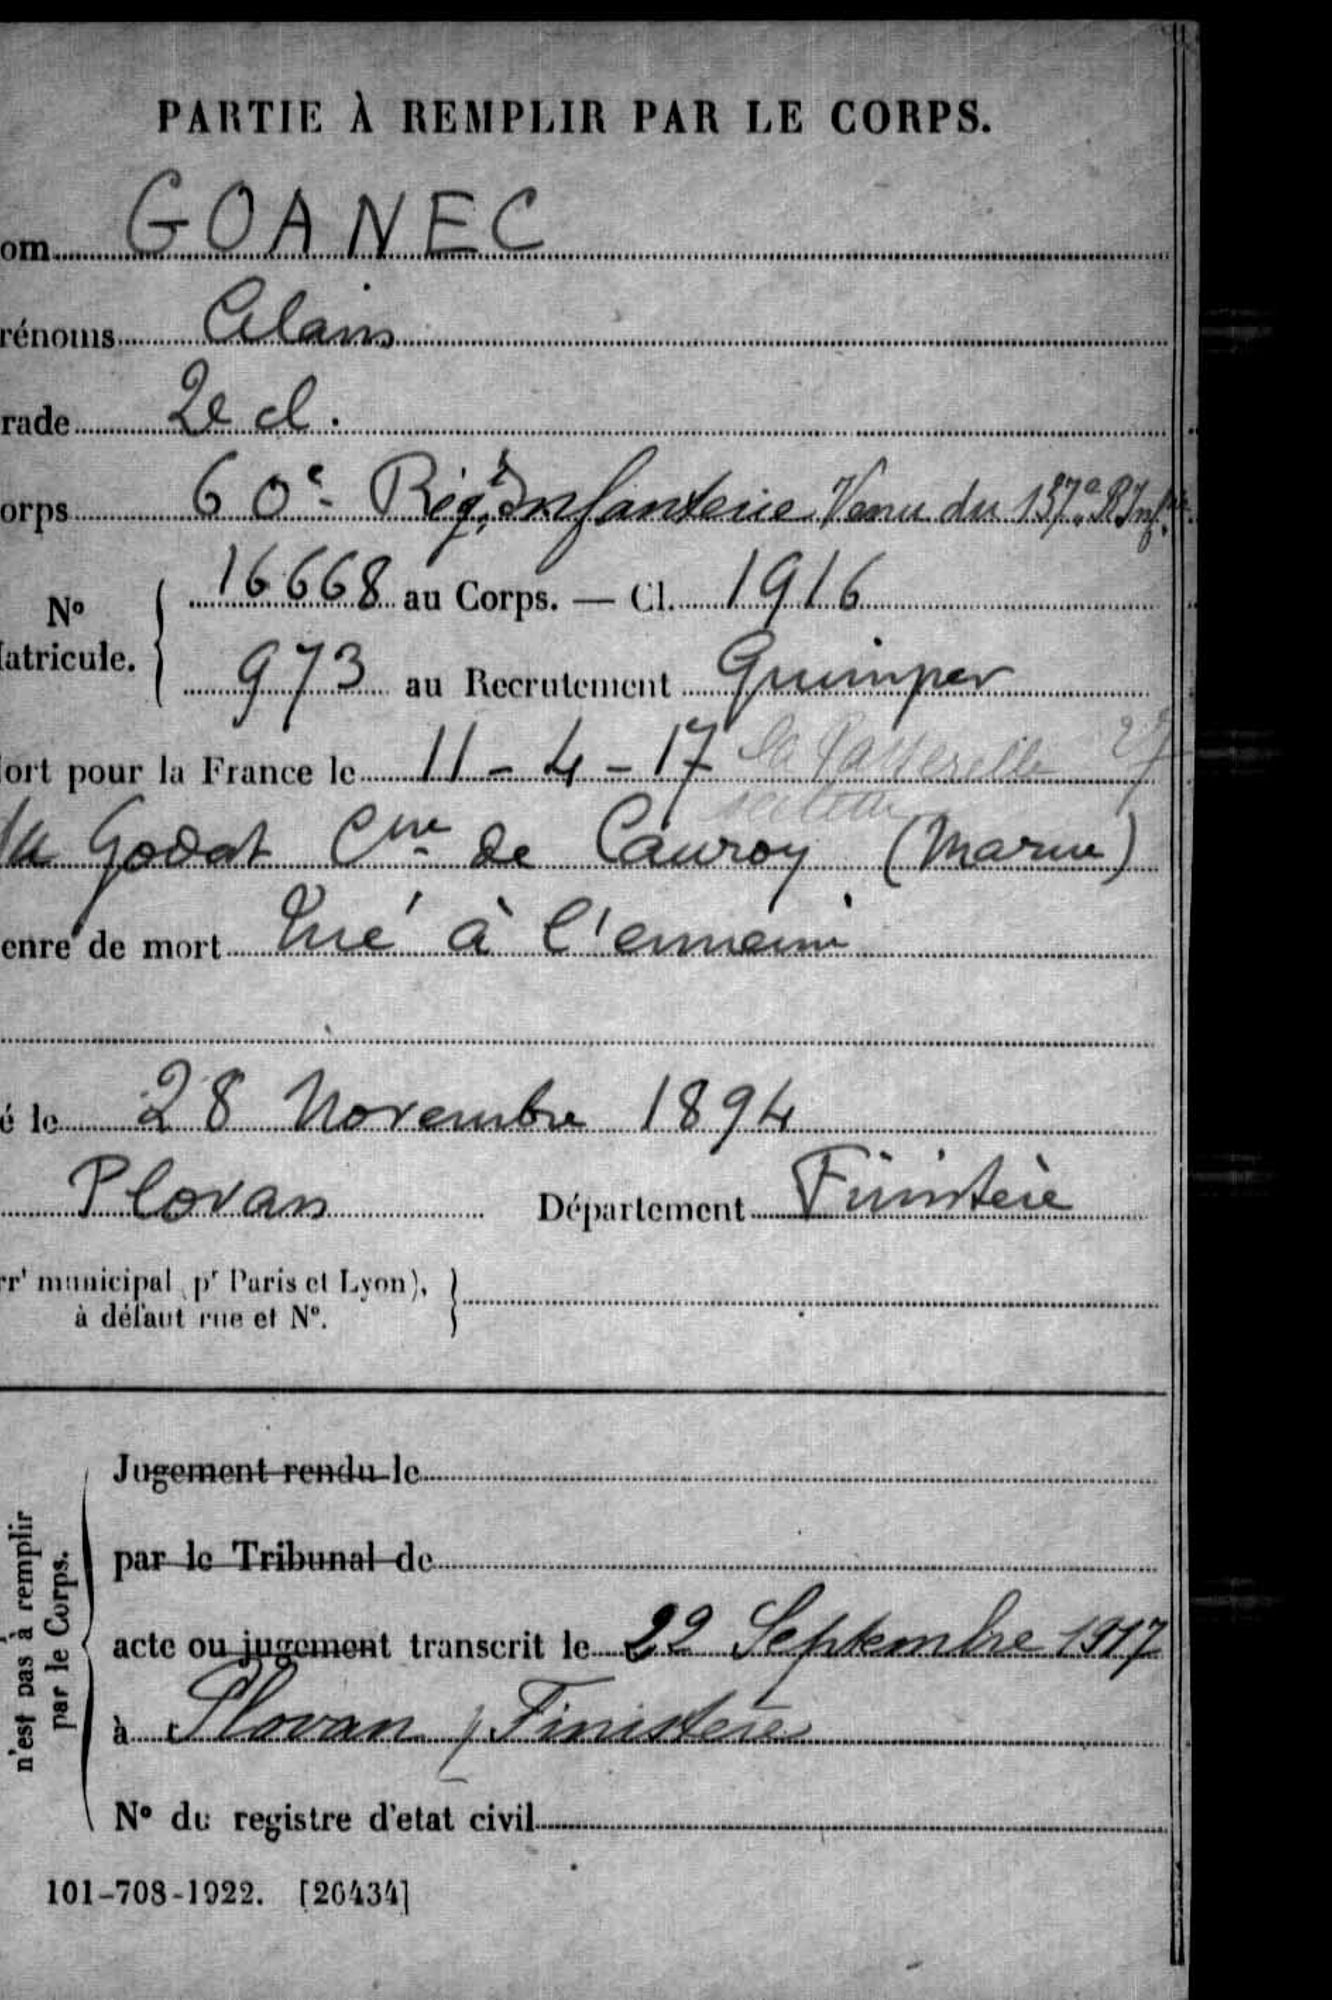 PARTIE À REMPLIR PAR LE CORPS.
om GOANEC
rénoms Alain
rade 2e cl.
orps 60e Régt Infanterie Venu du 137e R Infie
No 16668 au Corps. — Cl. 1916
latricule. 973 au Recrutement Quimper
ort pour la France le 11-4-17 la Passerelle
secteur
Godat Cne de Cauroy (Marne)
enre de mort Tué à l'ennemi
é le 28 Novembre 1894
Plovan Département Finistère
rrt municipal (pr Paris et Lyon),
à défaut rue et No.
n'est pas à remplir
par le Corps.
Jugement rendu le
par le Tribunal de
acte ou jugement transcrit le 22 Septembre 1917
à Plovan / Finistère
No du registre d'etat civil
101-708-1922. [26434]